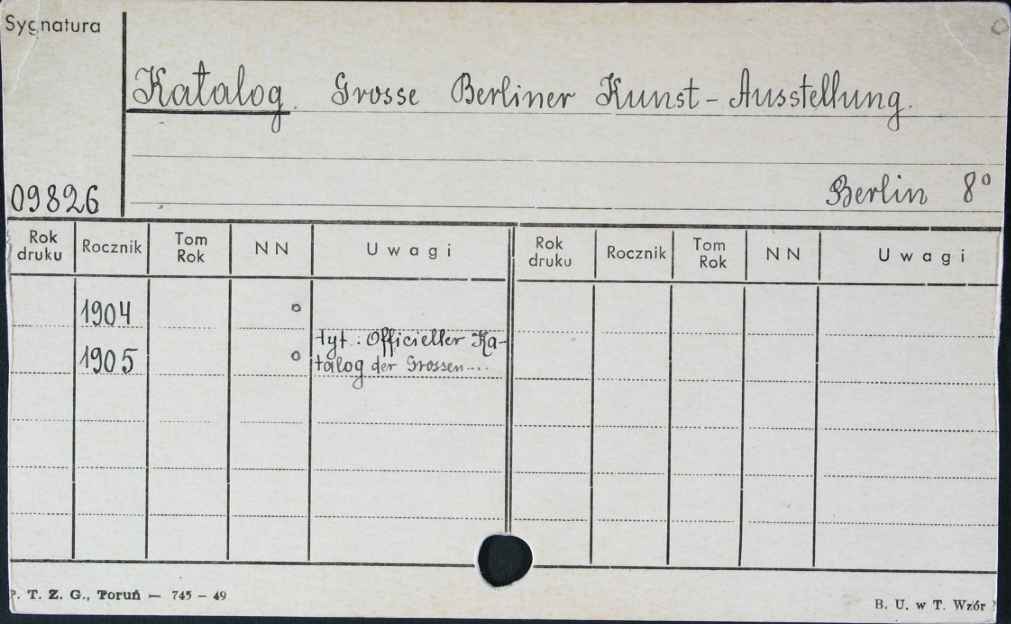 Sygnatura
Katalog. Grosse Berliner Kunst-Ausstellung.
09826
Berlin 8°
Rok druku Rocznik Tom Rok NN Uwagi Rok druku Rocznik Tom Rok NN Uwagi
1904 o
1905 o tyt.: Officieller Ka-
talog der Grossen....
P. T. Z. G., Toruń — 745 – 49
B. U. w T. Wzór